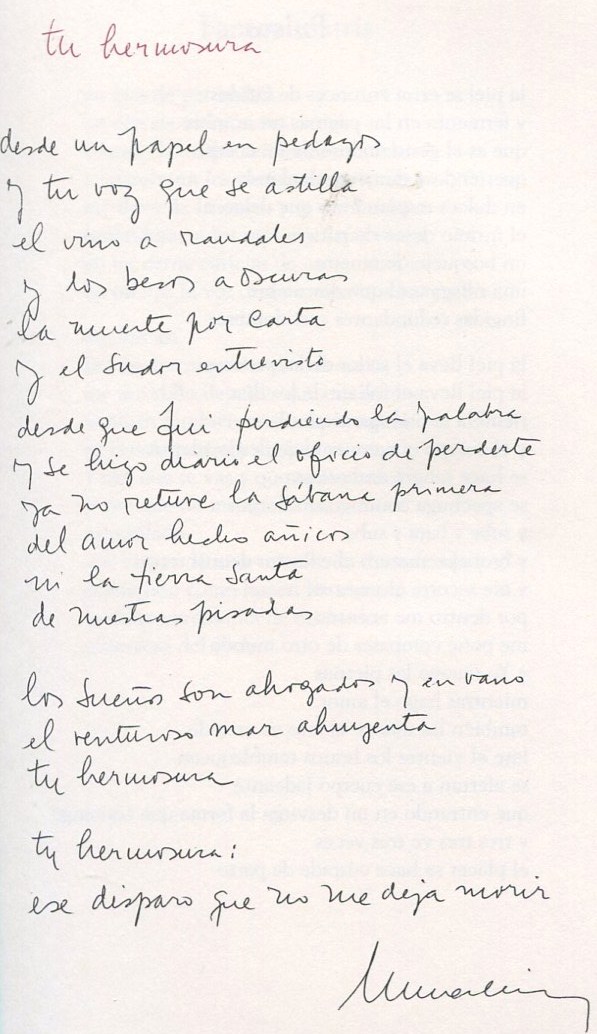 tu hermosura
desde un papel en pedazos
y tu voz que se astilla
el vino a raudales
y los besos a oscuras
la muerte por carta
y el sudor entrevisto
desde que fui perdiendo la palabra
y se hizo diario el oficio de perderte
ya no retuve la sábana primera
del amor hecho añicos
ni la tierra santa
de nuestras pisadas
los sueños son ahogados y en vano
el venturoso mar ahuyenta
tu hermosura
tu hermosura:
ese disparo que no me deja morir